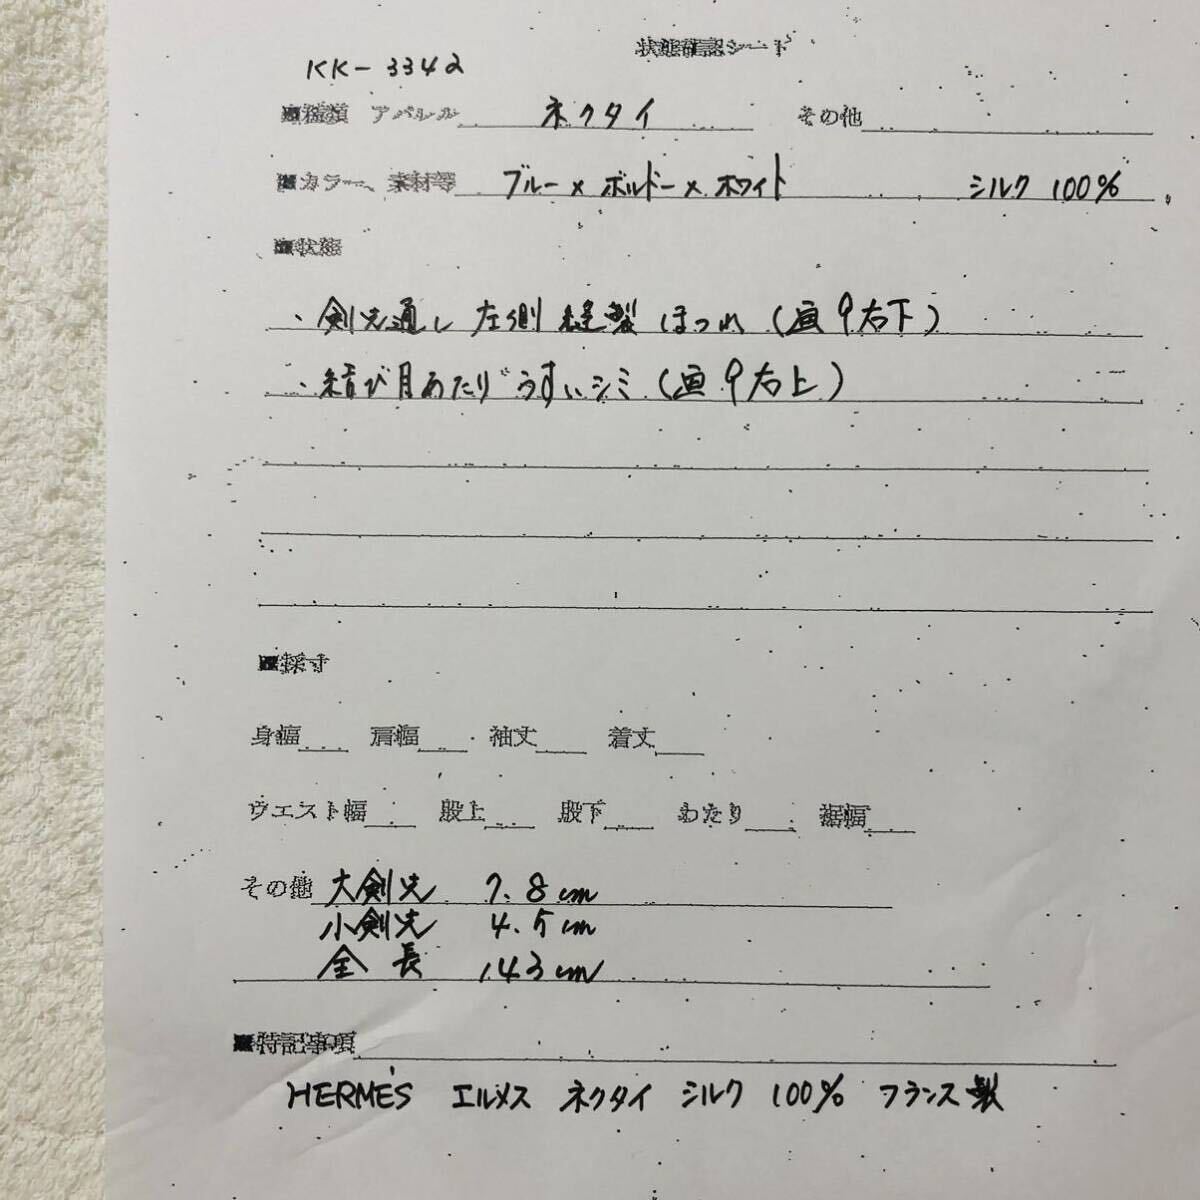 状態確認シート
KK-3342
■種類 アパレル ネクタイ その他
■カラー、素材等 ブルー×ボルドー×ホワイト シルク 100%
■状態
・剣先通し 左側 縫製 ほつれ (画9右下)
・結び目あたり うすいシミ (画9右上)
■採寸
身幅 肩幅 袖丈 着丈
ウエスト幅 股上 股下 わたり 裾幅
その他 大剣先 7.8cm
小剣先 4.5cm
全長 143cm
■特記事項
HERMÈS エルメス ネクタイ シルク 100% フランス製